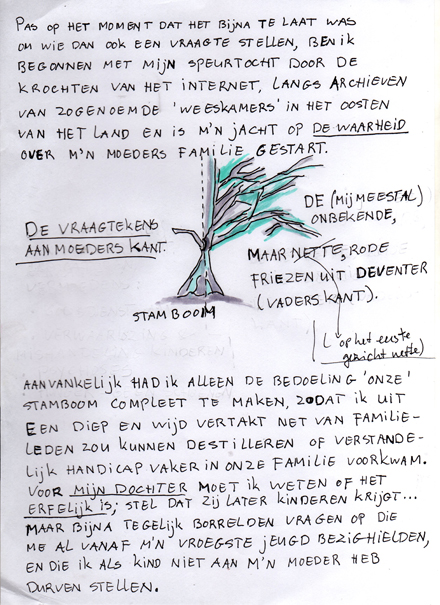 PAS OP HET MOMENT DAT HET BIJNA TE LAAT WAS
OM WIE DAN OOK EEN VRAAGTE STELLEN, BEN IK
BEGONNEN MET MIJN SPEURTOCHT DOOR DE
KROCHTEN VAN HET INTERNET, LANGS ARCHIEVEN
VAN ZOGENOEMDE 'WEESKAMERS' IN HET OOSTEN
VAN HET LAND EN IS M'N JACHT OP DE WAARHEID
OVER M'N MOEDERS FAMILIE GESTART.
DE VRAAGTEKENS
AAN MOEDERS KANT.
STAMBOOM
DE (MIJ MEESTAL)
ONBEKENDE,
MAAR NETTE, RODE
FRIEZEN UIT DEVENTER
(VADERS KANT).
(op het eerste
gezicht nette)
AANVANKELIJK HAD IK ALLEEN DE BEDOELING 'ONZE'
STAMBOOM COMPLEET TE MAKEN, ZODAT IK UIT
EEN DIEP EN WIJD VERTAKT NET VAN FAMILIE-
LEDEN ZOU KUNNEN DESTILLEREN OF VERSTANDE-
LIJK HANDICAP VAKER IN ONZE FAMILIE VOORKWAM.
VOOR MIJN DOCHTER MOET IK WETEN OF HET
ERFELIJK IS; STEL DAT ZIJ LATER KINDEREN KRIJGT...
MAAR BIJNA TEGELIJK BORRELDEN VRAGEN OP DIE
ME AL VANAF M'N VROEGSTE JEUGD BEZIGHIELDEN,
EN DIE IK ALS KIND NIET AAN M'N MOEDER HEB
DURVEN STELLEN.